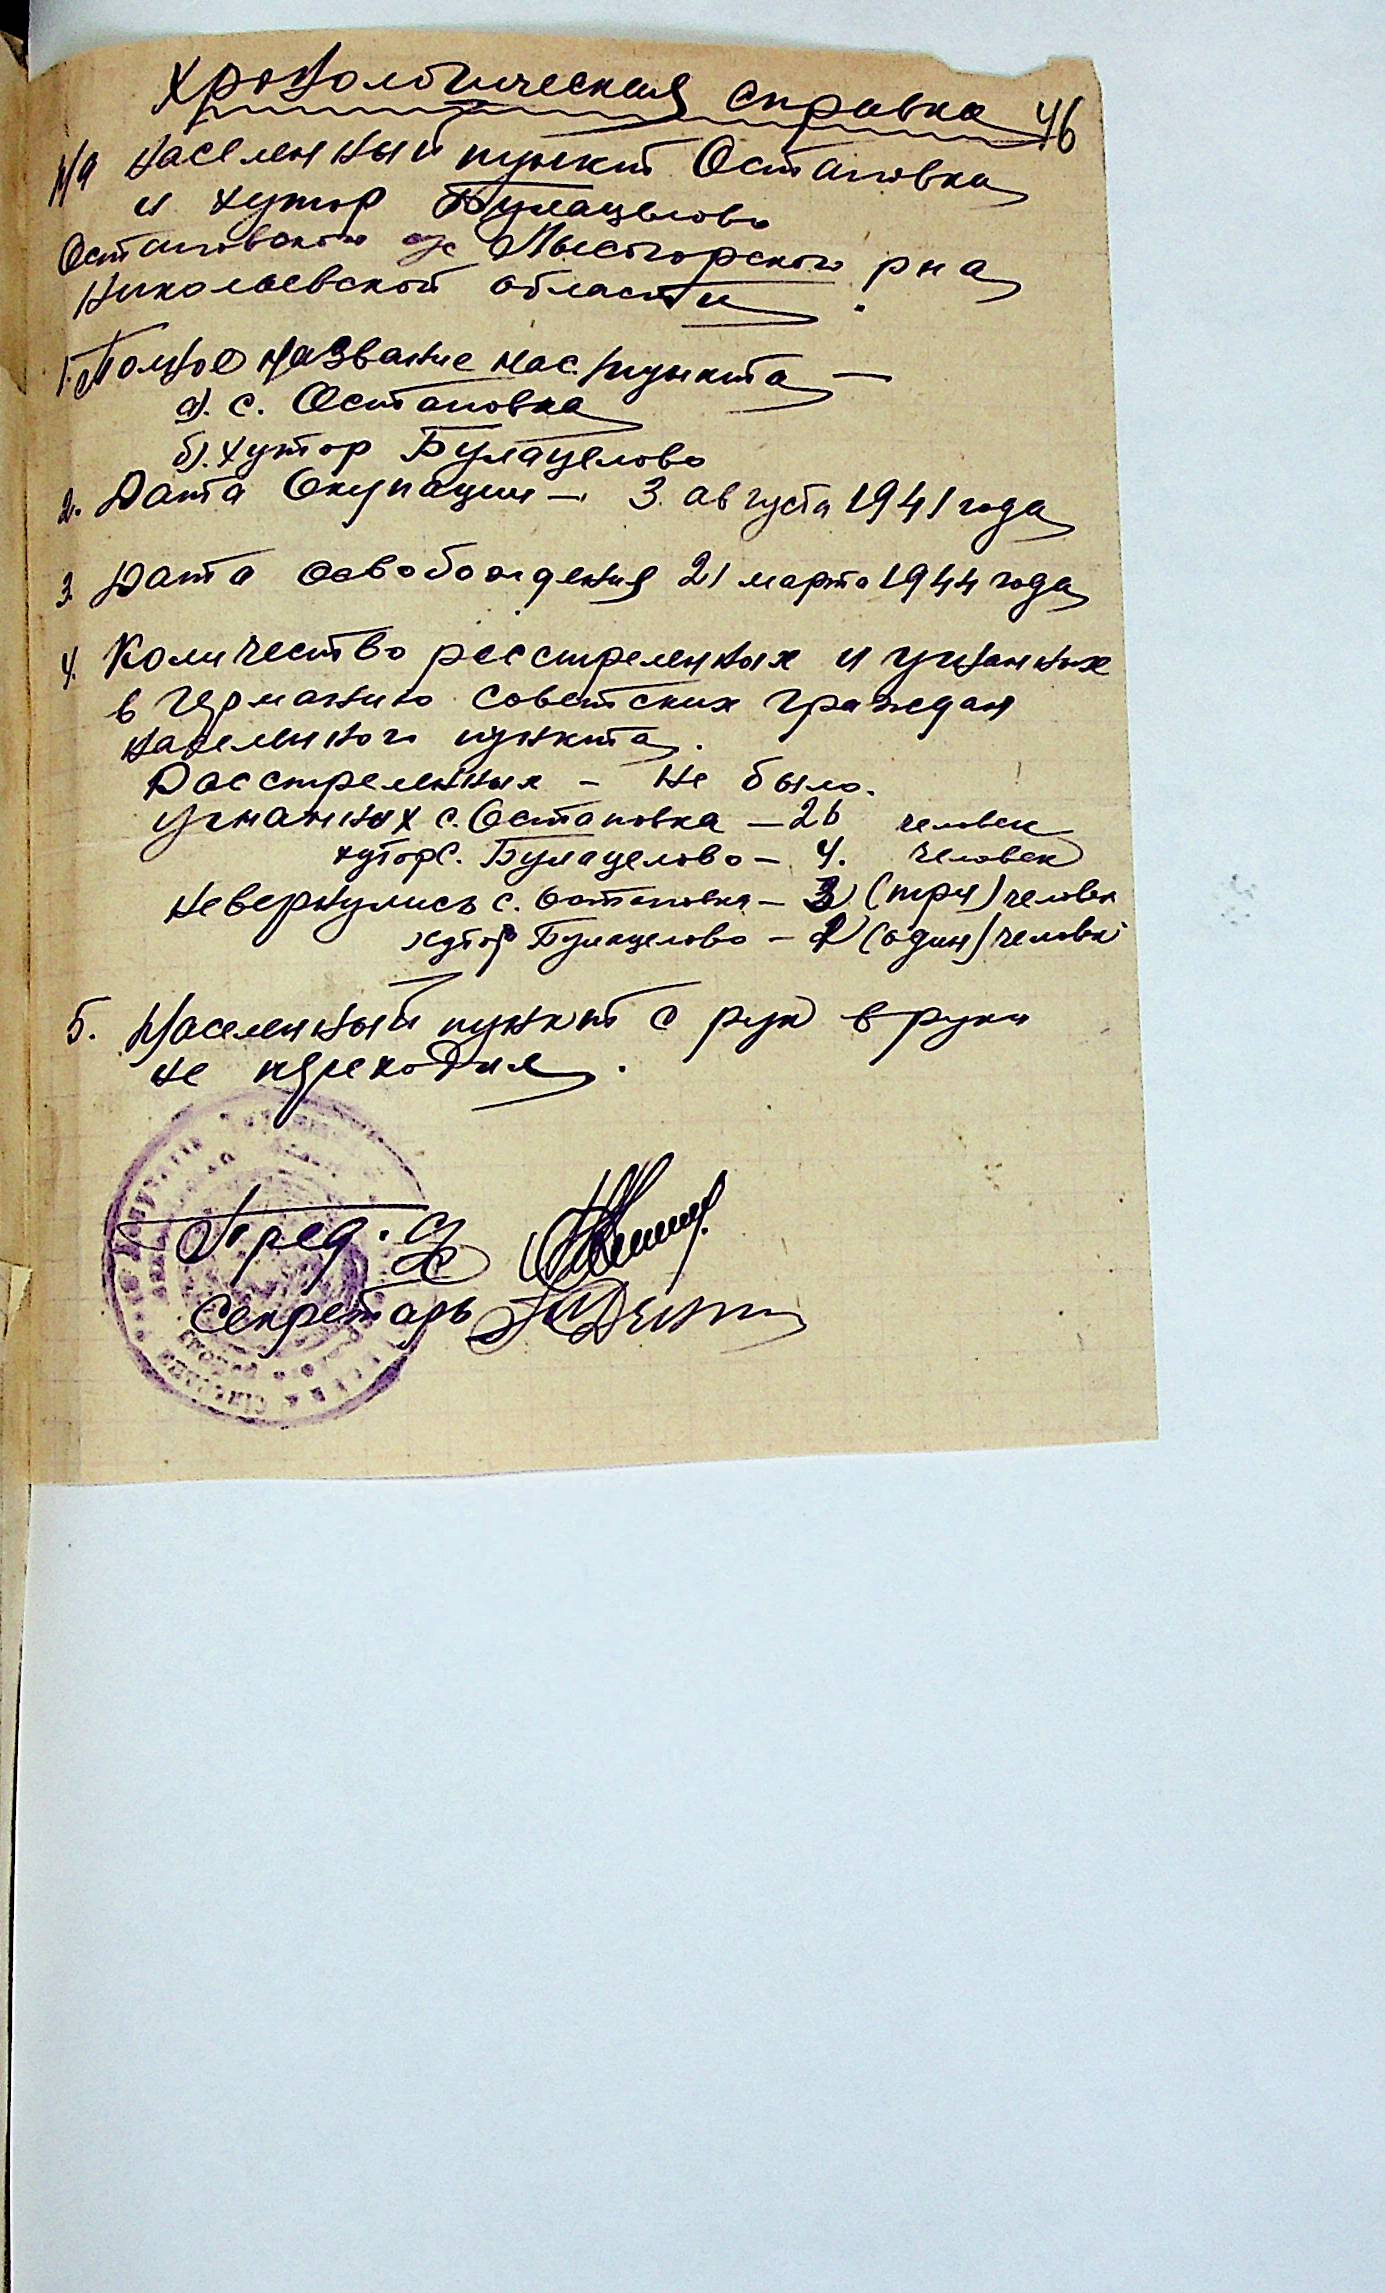 Хронологическая справка 46
На населенный пункт Остановка
и хутор Булацелово
Остаповского с/с Лысогорского рна
Николаевской области.
1. Полное название нас. пункта —
а). с. Остаповка
б). хутор Булацелово
2. Дата Окупации — 3. августа 1941 года
3 Дата освобождения 21 марта 1944 года
4. Количество расстреленных и угнанных
в германию советских граждан
населенного пункта.
Расстреленных — не было.
угнанных с. Остаповка — 26 человек
хутор с. Булацелово — 4. человек
невернулись с. Остаповка — 3 (три) человек
хутор Булацелово — 1 (один) человек
5. Населенный пункт с рук в руки
не переходил.
Пред. с/с
Секретарь